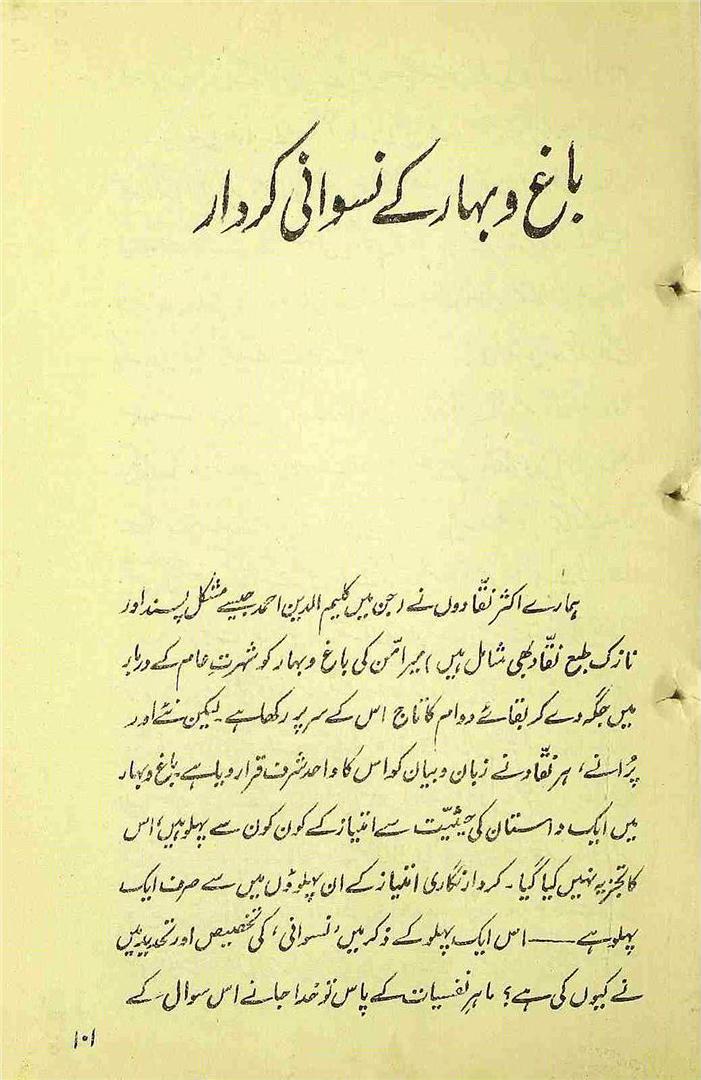 باغ و بہار کے نسوانی کردار
ہمارے اکثر نقّادوں نے (جن میں کلیم الدین احمد جیسے مشکل پسند اور
نازک طبع نقّاد بھی شامل ہیں) میر امّن کی باغ و بہار کو شہرتِ عام کے دربار
میں جگہ دے کر بقائے دوام کا تاج اس کے سر پر رکھا ہے۔ لیکن نئے اور
پُرانے، ہر نقّاد نے زبان و بیان کو اس کا واحد شرف قرار دیا ہے۔ باغ و بہار
میں ایک داستان کی حیثیّت سے امتیاز کے کون کون سے پہلو ہیں، اس
کا تجزیہ نہیں کیا گیا۔ کردار نگاری امتیاز کے ان پہلوؤں میں سے صرف ایک
پہلو ہے —— اس ایک پہلو کے ذکر میں 'نسوانی' کی تخصیص اور تحدید میں
نے کیوں کی ہے؟ ماہرِ نفسیات کے پاس تو خدا جانے اس سوال کے
۱۰۱